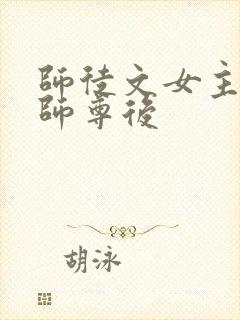 師徒文女主
師尊後
胡泳